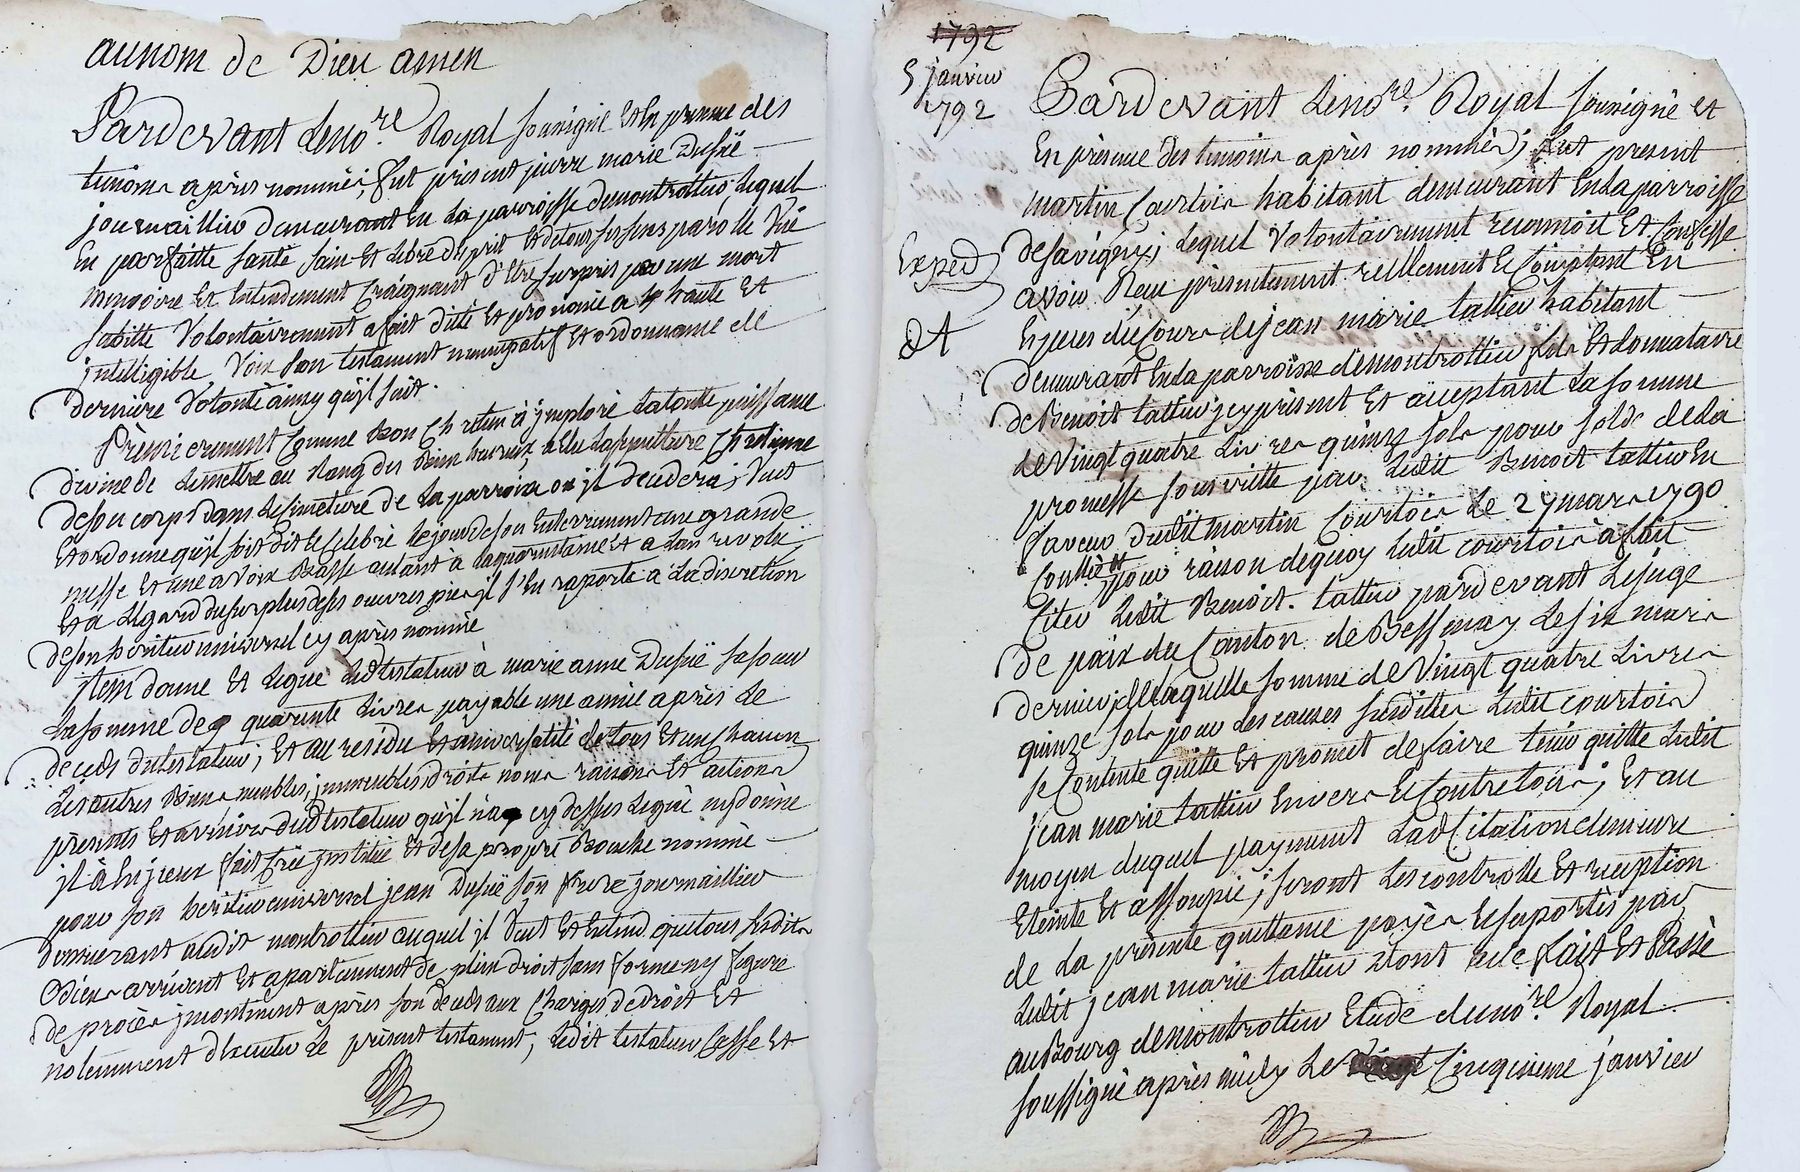 au nom de Dieu amen
Pardevant Leno.re Royal soussigné Et En presence des
temoins après nommés, fut present pierre marie Dussié
journaillier demeurant En La parroisse demontrottier, Lequel
En parfaitte santé sain Et Libre desprit Et detous ses sens parolle vüe
memoire Et Entendement Craignant d'Etre surpris par une mort
subitte Volontairement a fait dicté Et prononcé a haute Et
jntelligible Voix son testament nuncupatif Et ordonnance de
derniere Volonté ainsy qu'jl suit.
Prèmierement Comme Bon Chretien à jmploré La toutte puissance
divine de Le mettre au Rang des Biens heureux, Elu La sepulture Chretienne
deson corps dans Le Cimetiere de La parroisse ou jl decedera; Veut
Et ordonne qu'jl soit dit Et Celebré Le jour deson Enterrement une grande
messe Et une a Voix Basse autant à La quarantaine Et a L'an revolu
Et a Legard du surplus deses œuvres pies jl s'En raporte a La discretion
deson heritier universel cy après nommé
jtem donne Et Legue Ledt testateur à marie anne Dussié sa sœur
La somme de quarente Livres payable une année après Le
deceds du testateur; Et au residu Et universalité de tous Et un chacun
Les autres Biens meubles, jmmeubles, droits noms raisons Et actions
présents Et avenirs dudt testateur qu'jl n'a cy dessus Legué ny donné
jl à fait Créé jnstitué Et desa propre Bouche nommé
pour son heritier universel jean Dussié son frere journaillier
demeurant audit montrottier auquel jl Veut Et Entend que tous sesdits
Biens arrivent Et apartiennent de plein droit sans forme ny figure
de procès jncontinent après son deceds aux Charges de droit Et
notamment d'Executer Le présent testament; Ledit testateur Casse Et
1792
5 janvier
1792
Pardevant Leno.re Royal soussigné Et
En présence des temoins après nommés; fut present
martin Courtois habitant demeurant En La parroisse
de savigny; Lequel Volontairement reconnoit Et Confesse
Exped
avoir Reçu présentement reellement Et Comptant En
Especes du Cours de jean marie tattier habitant
dt
demeurant En La parroisse demontrottier fils Et donnataire
de Benoit tattier jcy présent Et acceptant La somme
de Vingt quatre Livres quinze sols pour solde de La
promesse sousvritte par Ledit Benoit tattier En
faveur dudit martin Courtois Le 27 mars 1790
Contlée
pour raison dequoy Ledit Courtois à fait
Citer Ledit Benoit tattier pardevant Le juge
de paix du Canton de Bessenay Le six mars
dernier; de Laquelle somme de Vingt quatre Livres
quinze sols pour Les causes susdittes Ledit Courtois
se Contente quitte Et promet de faire tenir quitte Ledit
jean marie tattier Envers Et Contre tous; Et au
moyen duquel payement Ladt Citation demeure
Eteinte Et assoupie; seront Les controlle Et reception
de La présente quittance payés Et suportés par
Ledit jean marie tattier Dont acte fait Et Passé
au Bourg demontrottier Etude duno.re Royal
soussigné après midy Le Cinquieme janvier